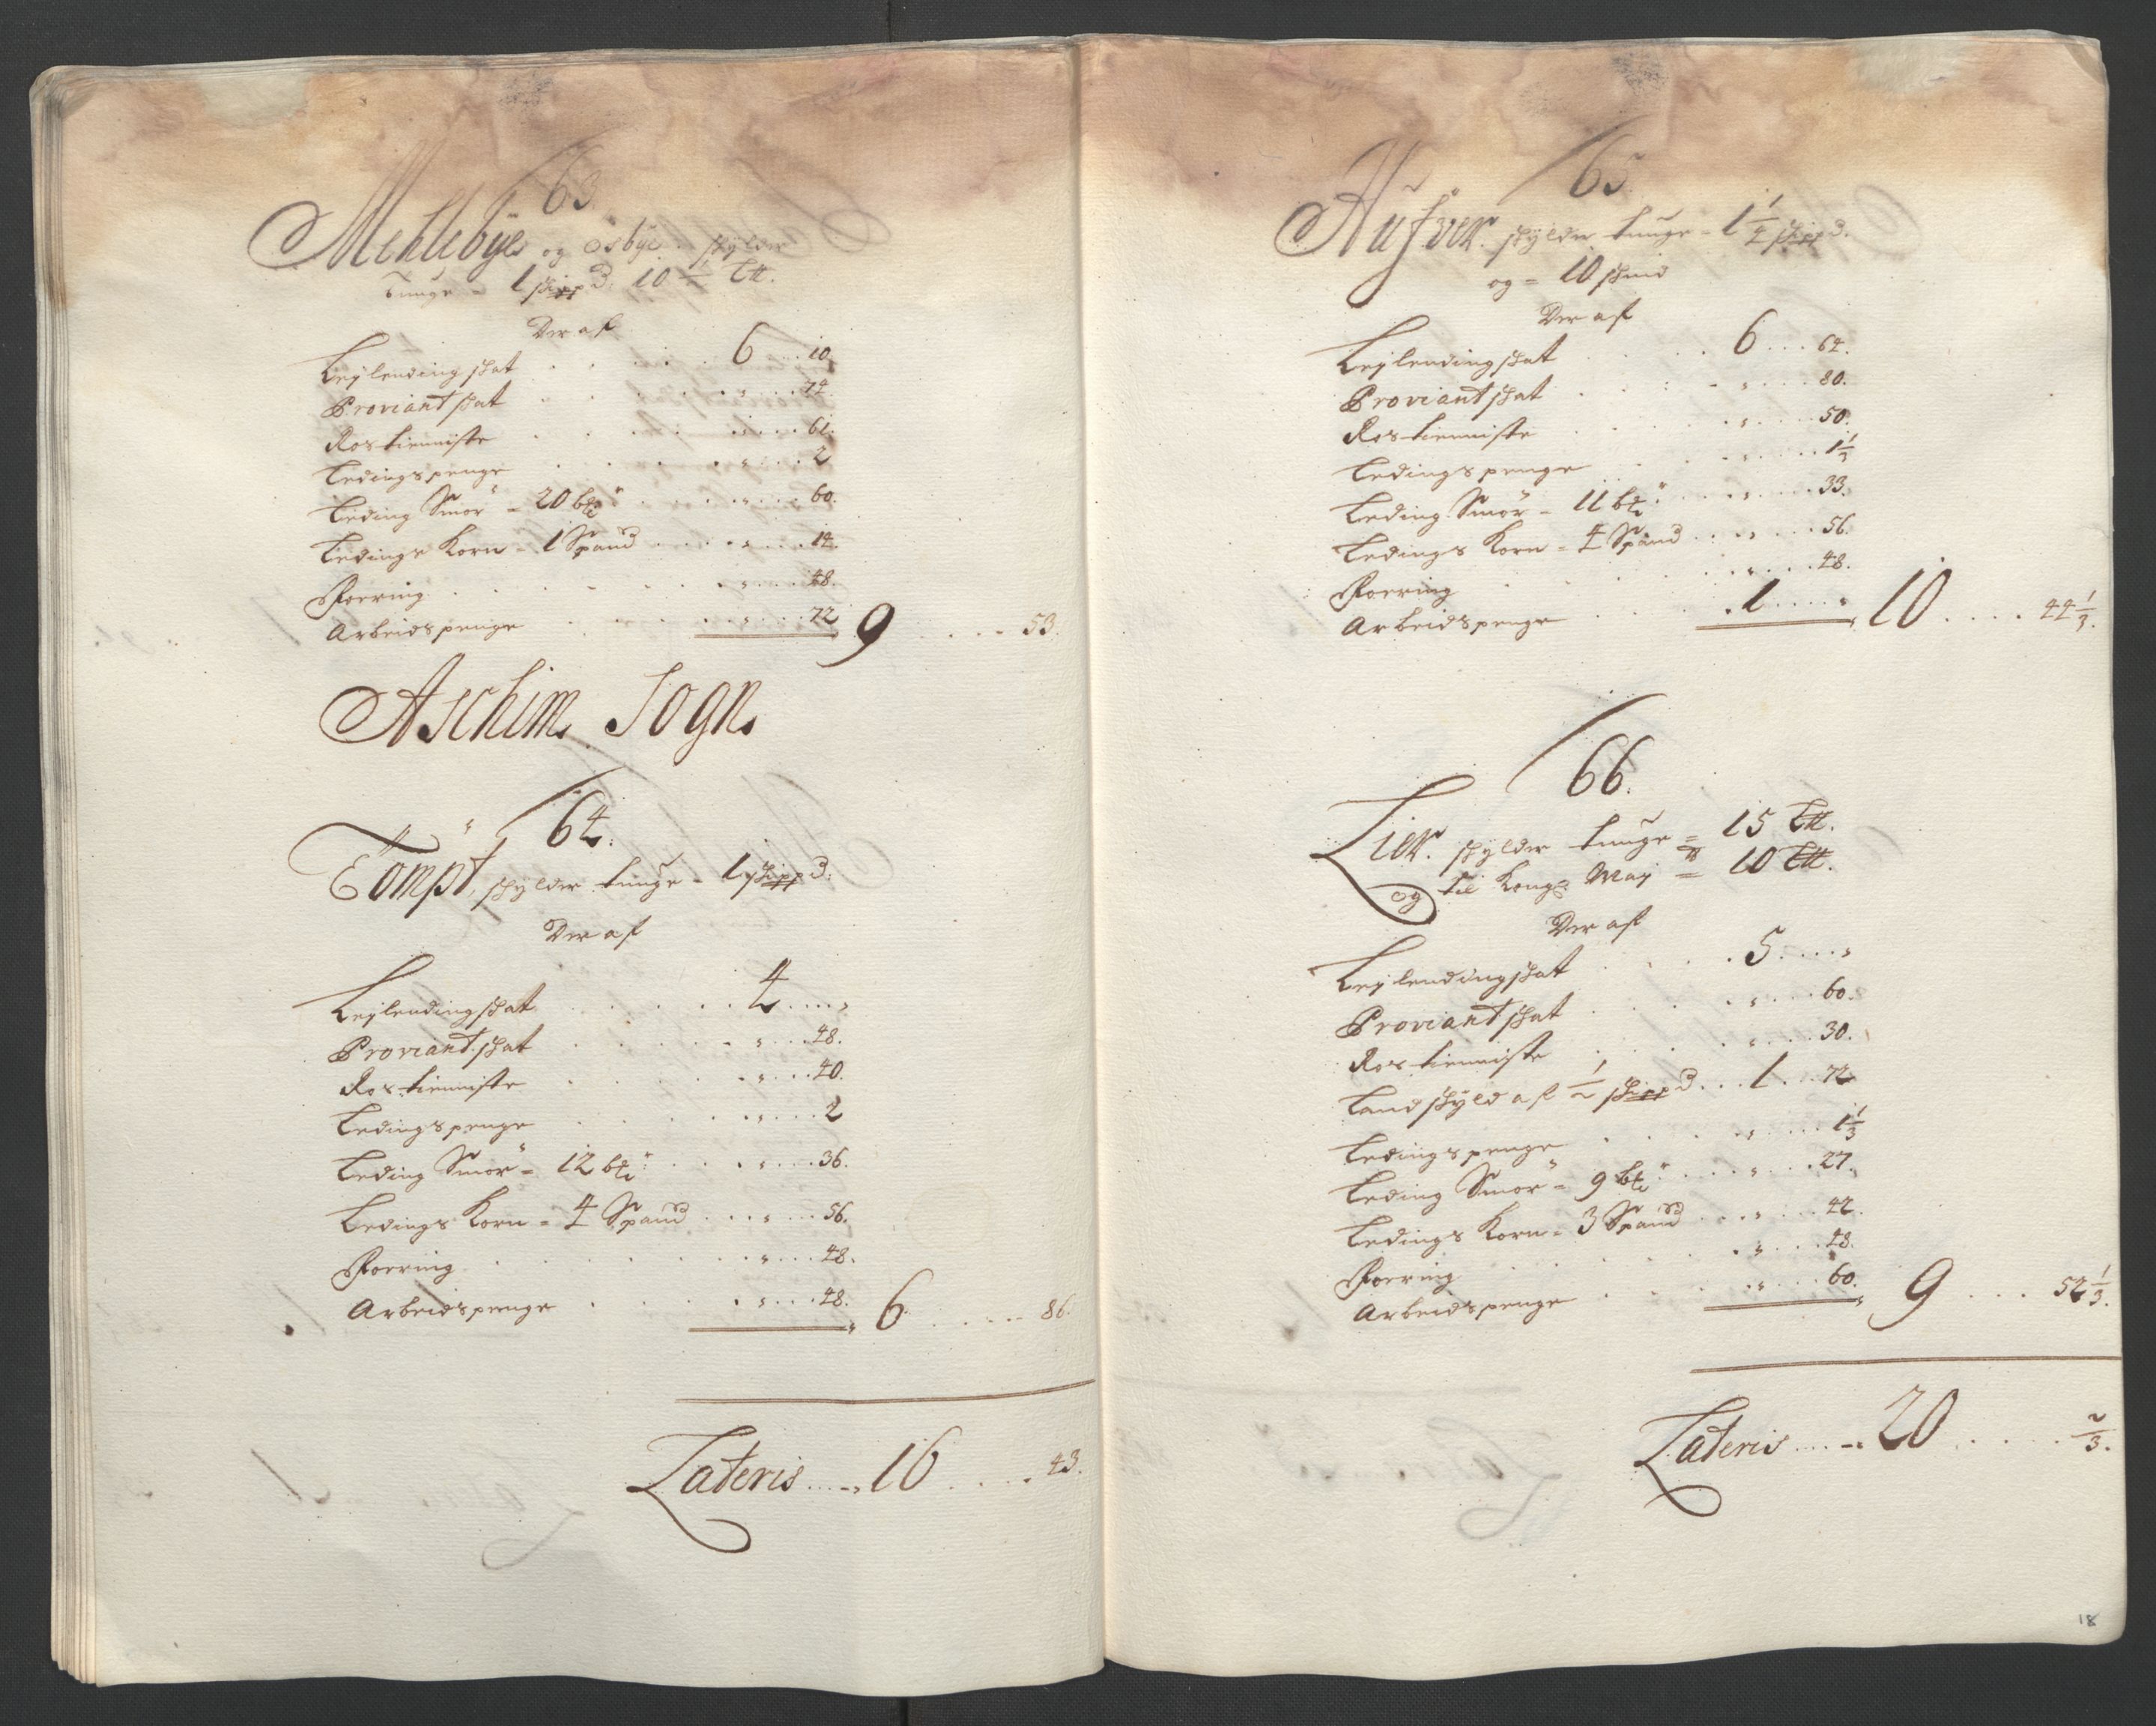 63
Mehlebÿe og Osbÿe skÿlder
Tunge - 1 skippd. 10 ½ ℔.
Der af
Leÿlending skat . . . . . 6 . . . 10
Proviant skat . . . . . " . . . 74.
Ros tienniste . . . . . " . . . 61.
Ledings penge . . . . . " . . . 2
Leding Smör - 20 bℓi: . . . " . . . 60.
Ledings Korn - 1 Spand . . . . " . . . 14.
Foering . . . . . . " . . . 48.
Arbeids penge . . . . . " . . . 72 9 . . . . 53.
Aschim Sogn
64.
Tömpt, skÿlder tunge - 1 skippd.
Der af
Leÿlending skat . . . . . 4 . . . "
Proviant skat . . . . . " . . . 48.
Ros tienniste . . . . . " . . . 40.
Ledings penge . . . . . " . . . 2
Leding Smör - 12 bℓi: . . . " . . . 36.
Ledings Korn - 4 Spand . . . " . . . 56.
Foering . . . . . . " . . . 48.
Arbeids penge . . . . . " . . . 48. 6 . . . . 86.
Lateris . . . . 16 . . . . 43.
65
skÿlder tunge - 1 ¼ skippd.
og - 10 skind
Der af
Leÿlending skat . . . . . 6 . . . 64.
Proviant skat . . . . . " . . . 80.
Ros tienniste . . . . . " . . . 50.
Ledings penge . . . . . " . . . 1⅓
Leding Smör - 11 bℓi: . . . " . . . 33.
Ledings Korn - 4 Spand . . . " . . . 56.
Foering . . . . . . " . . . 48.
Arbeids penge . . . . . 1 . . . " 10 . . . . 44⅓.
66.
Lier. skÿlder tunge = 15 ℔.
og til Kongs Maÿ = 10 ℔.
Der af
Leÿlending skat . . . . . 5 . . . "
Proviant skat . . . . . " . . . 60.
Ros tienniste . . . . . " . . . 30.
Landskÿld af ½ skippd . . . 1 . . . 72
Ledings penge . . . . . " . . . 1⅓
Leding Smör - 9 bℓi: . . . " . . . 27.
Ledings Korn - 3 Spand . . . " . . . 42.
Foering . . . . . . " . . . 48.
Arbeids penge . . . . . " . . . 60. 9 . . . 52⅓.
Lateris . . . . 20 . . . . ⅔.
18